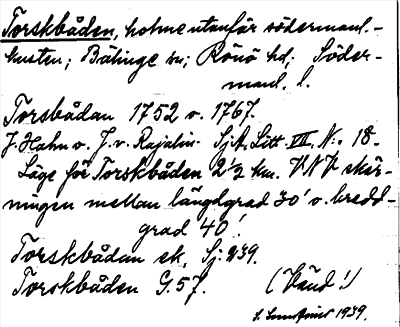 Torskbåden, holme utanför södermanl.-
kusten; Bälinge sn; Rönö hd; Söder-
manl. l.
Torsbådan 1752 o. 1767.
J. Hahn o. J. v. Rajalin. SjA. Litt. VII, N:o 18-
Läge för Torskbåden 2 1/2 km. VNV skär-
ningen mellan längdgrad 30' o. bredd-
grad 40'.
Torskbådan ek. Sj: 239.
Torskbåden G. 57. (Vänd!)
1939.